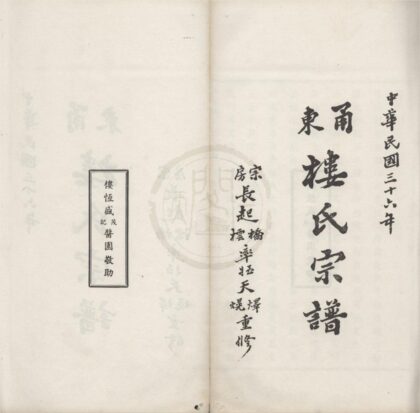 中華民國三十六年
甬東
樓氏宗譜
宗房長起橋率姪天重修
樓恆盛茂記醬園敬助